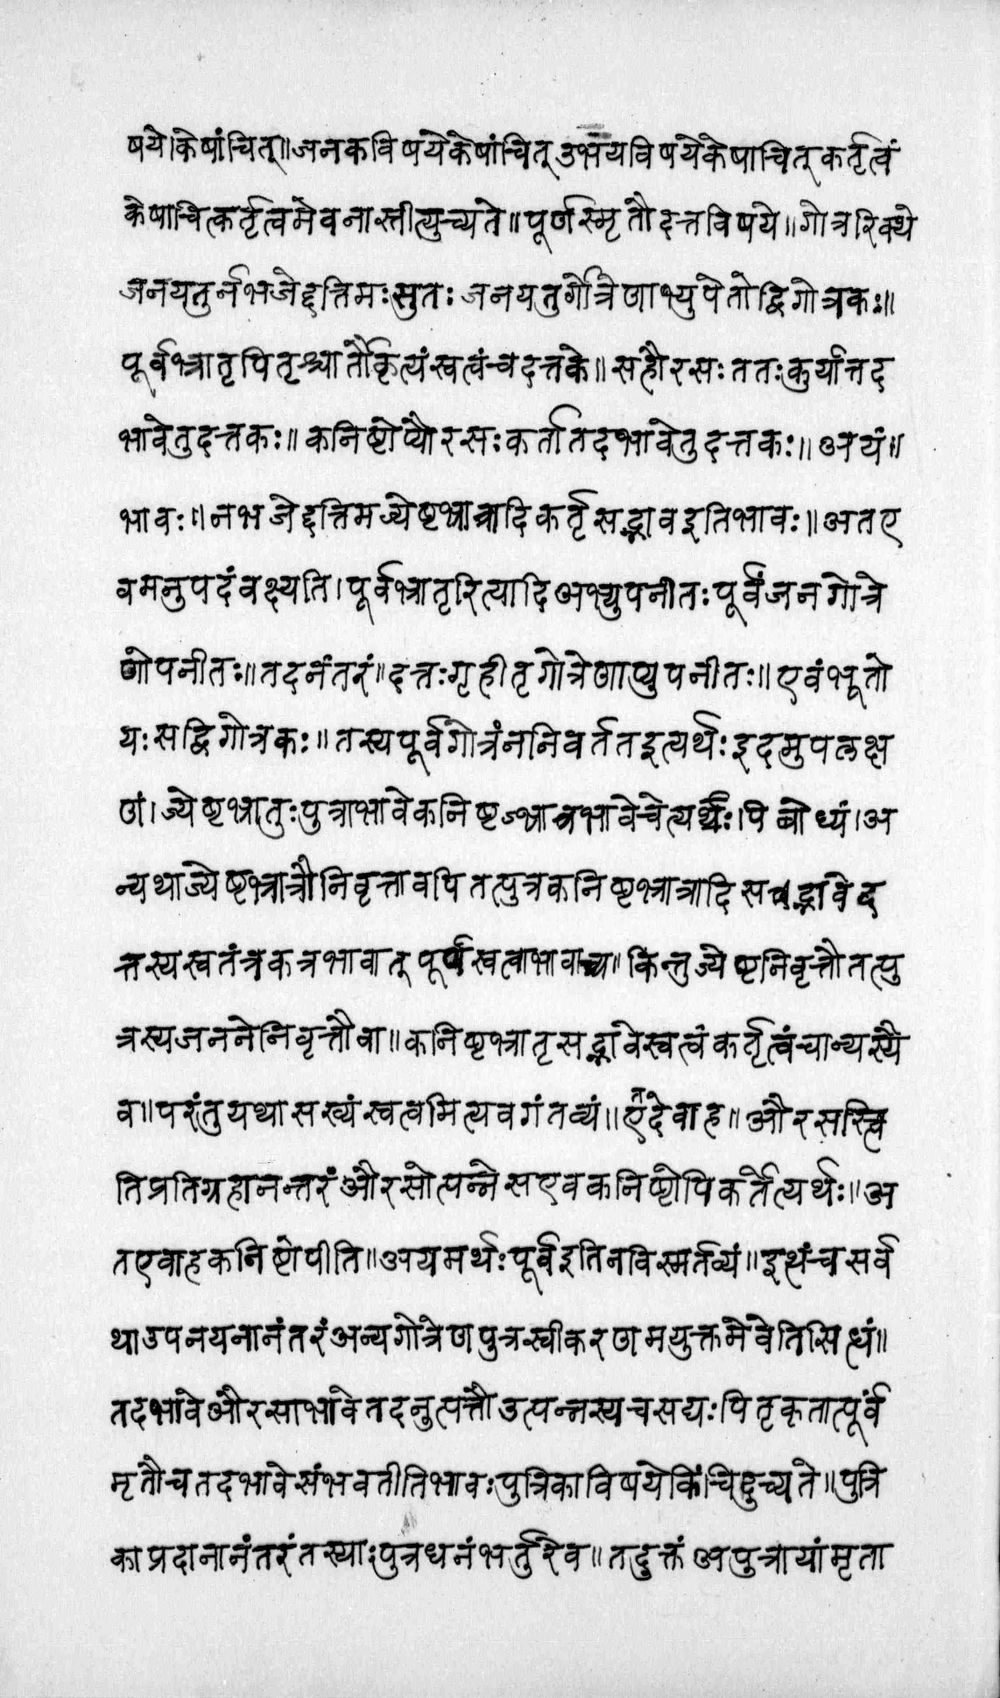 षये।केषांचित्॥जनकविषयेकेषांचित् उभयविषयेकेषाचित्कर्तृत्वं
केषाचित्कर्तृत्वमेवनास्तीत्युच्यते॥पूर्णस्मृतौदत्तविषये॥गोत्ररिक्थे
जनयतुर्नभजेद्दत्तिमःसुतः जनयतुर्गोत्रेणाभ्युपेतोद्विगोत्रकः॥
पूर्वभ्रातृपितृभ्रातौकृत्यंस्वत्वंन्चदत्तके॥सहौरसःततःकुर्यात्तद
भावेतुदत्तकः॥कनिष्टोप्यौरसःकर्तातदभावेतुदत्तकः॥अयं॥
भावः॥नभजेद्दत्तिमज्येष्टभ्रात्रादिकर्तृसद्भावइतिभावः॥अतए
वमनुपदंवक्ष्यति।पूर्वभ्रातृरित्यादिअभ्युपनीतःपूर्वंजनगोत्रे
णोपनीतः॥तदनंतरं॥दत्तःगृहीतृगोत्रेणाप्युपनीतः॥एवंभूतो
यःसद्विगोत्रकः॥तस्यपूर्वगोत्रंननिवर्ततइत्यर्थःइदमुपलक्ष
णं।ज्येष्टभ्रातुःपुत्राभावेकनिष्टभ्रात्रभावेचेत्यर्थः।पि बोध्यं।अ
न्यथाज्येष्टभ्रात्रौनिवृत्तावपितत्पुत्रकनिष्टभ्रात्रादिसद्भावेद
त्तस्यस्वतंत्रकत्रभावात् पूर्णस्वत्वाभावाच्च॥किन्तुज्येष्टनिवृत्तौतत्पु
त्रस्यजननेनिवृत्तौवा॥कनिष्टभ्रातृसद्भावेस्वत्वंकर्तृत्वंचान्यस्यै
व॥परंतुयथासख्यंस्वत्वमित्यवगंतव्यं॥एतदेवाह॥औरसस्त्वि
तिप्रतिग्रहानन्तरंऔरसोत्पन्नेसएवकनिष्टोपिकर्तेत्यर्थः॥अ
तएवाहकनिष्टोपीति॥अयमर्थःपूर्वइतिनविस्मर्तव्यं॥इत्थंन्चसर्व
थाउपनयनानंतरंअन्यगोत्रेणपुत्रस्वीकरणमयुक्तमेवेतिसिध्यं॥
तदभावेऔरसाभावेतदनुत्पत्तौउत्पन्नस्यचसद्यःपितृकृतात्पूर्वं
मृतौचतदभावेसंभवतीतिभावःपुत्रिकाविषयेकिंचिदुच्यते॥पुत्रि
काप्रदानानंतरंतस्याःपुत्रधनंभर्तुरेव॥तदुक्तंअपुत्रायांमृता